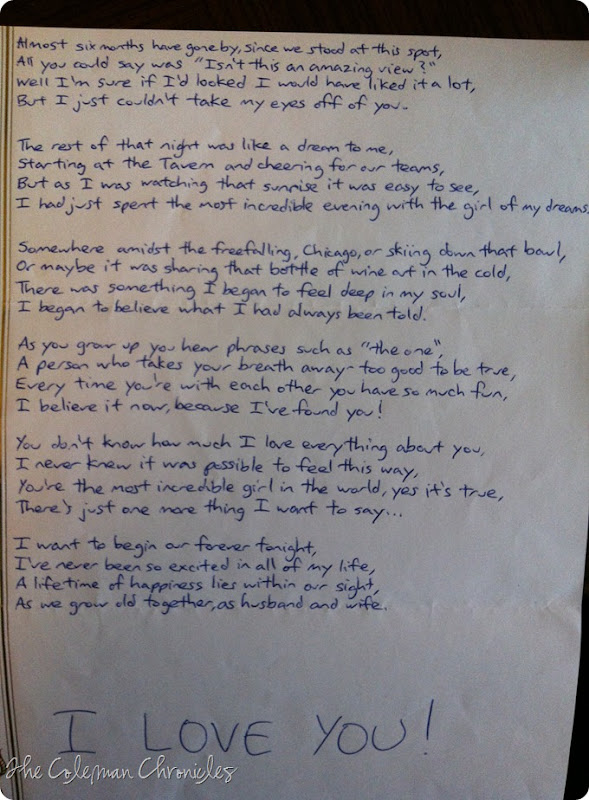 Almost six months have gone by, since we stood at this spot,
All you could say was "Isn't this an amazing view?"
Well I'm sure if I'd looked I would have liked it a lot,
But I just couldn't take my eyes off of you.
The rest of that night was like a dream to me,
Starting at the Tavern and cheering for our teams,
But as I was watching that sunrise it was easy to see,
I had just spent the most incredible evening with the girl of my dreams.
Somewhere amidst the freefalling, Chicago, or skiing down that bowl,
Or maybe it was sharing that bottle of wine out in the cold,
There was something I began to feel deep in my soul,
I began to believe what I had always been told.
As you grow up you hear phrases such as "the one",
A person who takes your breath away - too good to be true,
Every time you're with each other you have so much fun,
I believe it now, because I've found you!
You don't know how much I love everything about you,
I never knew it was possible to feel this way,
You're the most incredible girl in the world, yes it's true,
There's just one more thing I want to say...
I want to begin our forever tonight,
I've never been so excited in all of my life,
A lifetime of happiness lies within our sight,
As we grow old together, as husband and wife.
I LOVE YOU!
The Coleman Chronicles